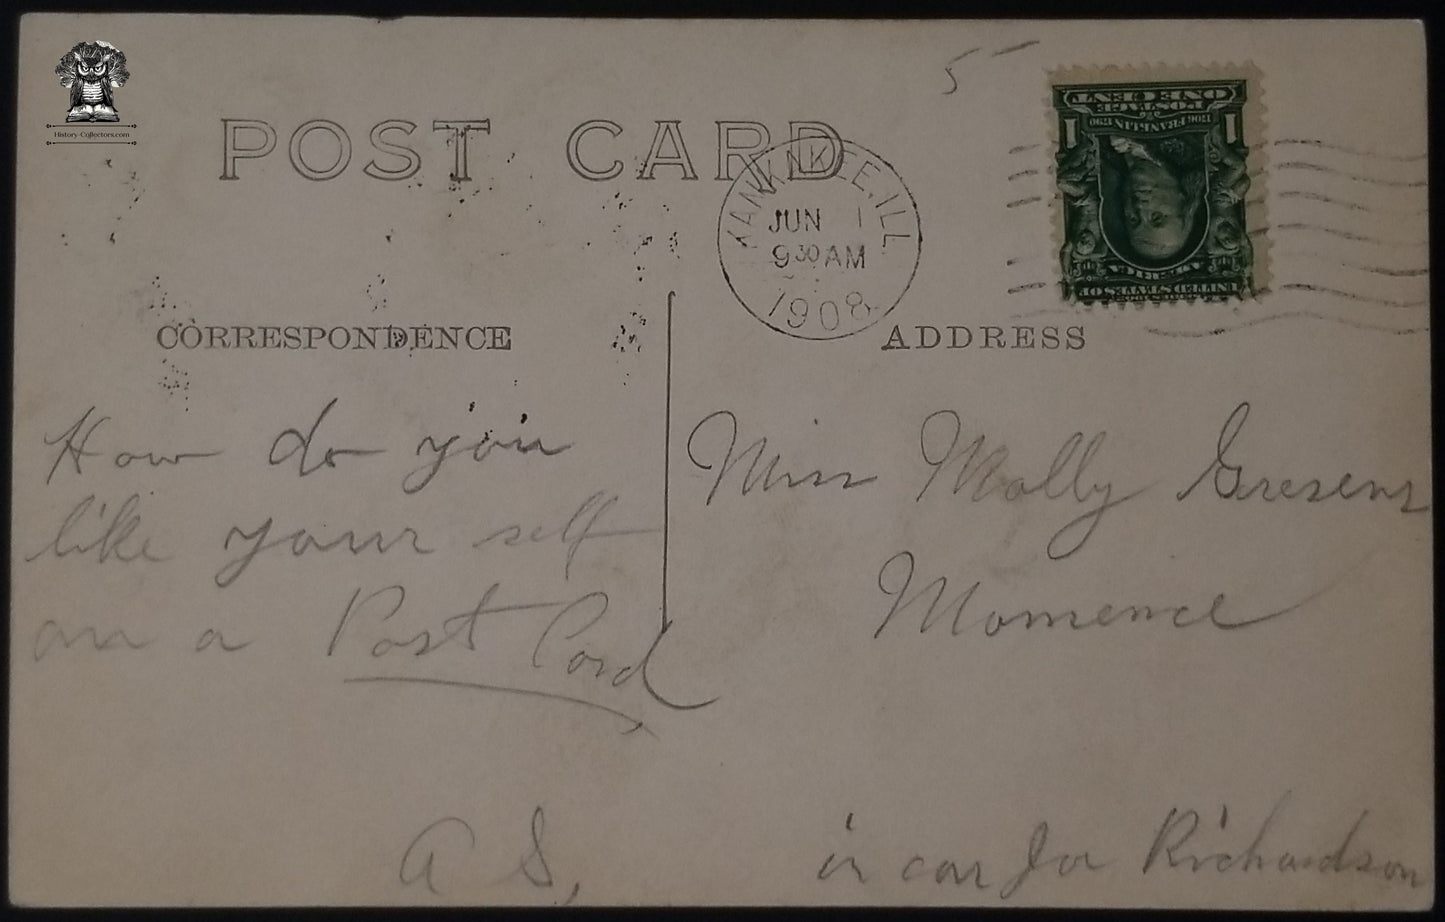 History-Collectors.com
5
POST CARD
KANKAKEE, ILL
JUN 1
9 30 AM
1908
ONE CENT
POSTAGE
1706 FRANKLIN 1790
1 1
UNITED STATES OF
AMERICA
CORRESPONDENCE
ADDRESS
How do you
like your self
on a Post Card
A S,
Miss Molly Gresens
Momence
in car Jo Richardson